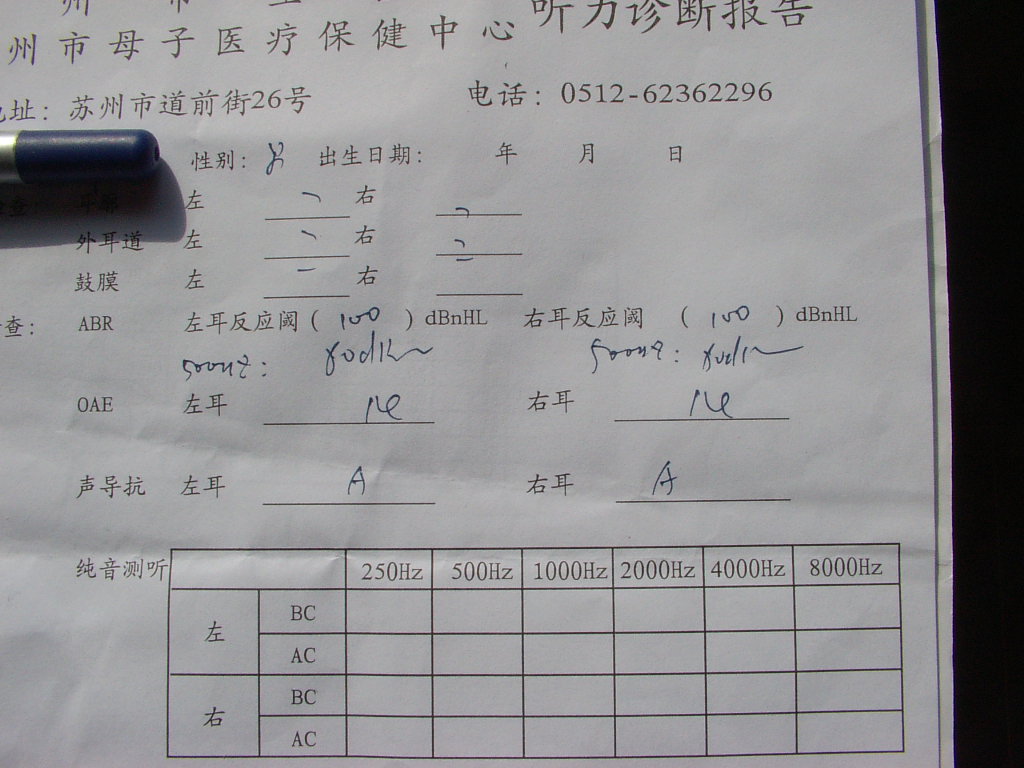 州市母子医疗保健中心 听力诊断报告
址: 苏州市道前街26号 电话: 0512-62362296
性别: 男 出生日期: 年 月 日
左 右
外耳道 左 右
鼓膜 左 右
查: ABR 左耳反应阈 ( 100 ) dBnHL 右耳反应阈 ( 100 ) dBnHL
500HZ: 500HZ:
OAE 左耳 右耳
声导抗 左耳 A 右耳 A
纯音测听 250Hz 500Hz 1000Hz 2000Hz 4000Hz 8000Hz
左 BC
AC
右 BC
AC